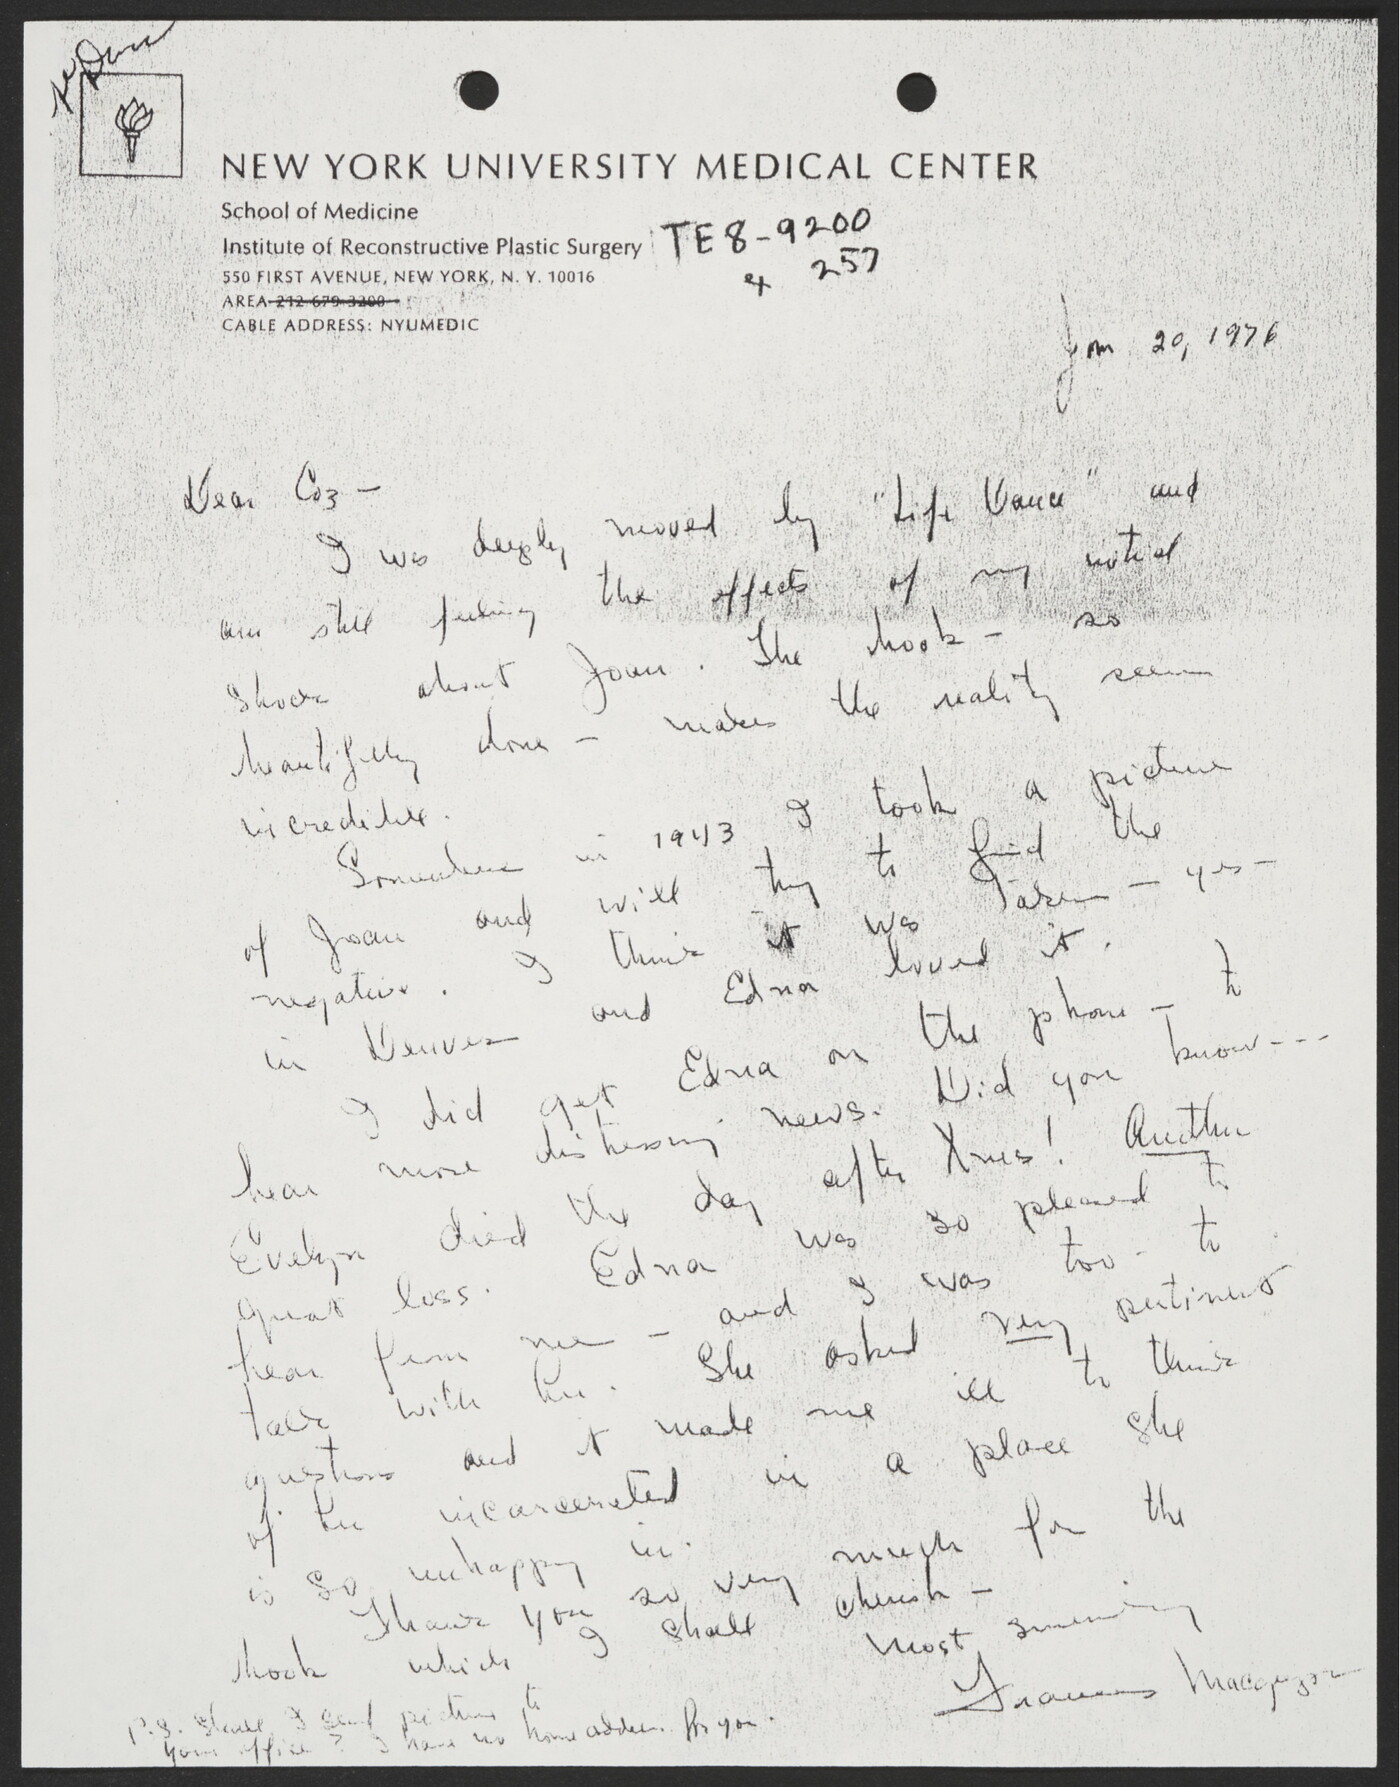 NEW YORK UNIVERSITY MEDICAL CENTER
School of Medicine
Institute of Reconstructive Plastic Surgery
TE 8-9200
x 257
550 FIRST AVENUE, NEW YORK, N. Y. 10016
AREA 212-679-3200
CABLE ADDRESS: NYUMEDIC
Jan 20, 1976
Dear Coz -
I was deeply moved by "Life Dance" and
am still feeling the effects of my initial
shock about Joan. The book - so
beautifully done - makes the reality seem
incredible.
Somewhere in 1943 I took a picture
of Joan and will try to find the
negative. I think it was taken - yes -
in Denver and Edna loved it.
I did get Edna on the phone - to
hear more distressing news. Did you know---
Evelyn died the day after Xmas! Another
great loss. Edna was so pleased to
hear from me - and I was too - to
talk with her. She asked very pertinent
questions and it made me ill to think
of her incarcerated in a place she
is so unhappy in.
Thank you so very much for the
book which I shall cherish -
Most sincerely
Frances Macgregor
P.S. Shall I send picture to
your office? I have no home address for you.